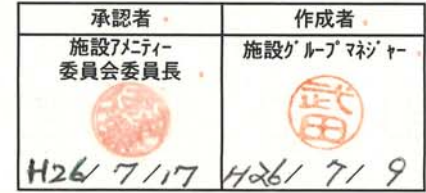 承認者
作成者
施設ｱﾒﾆﾃｨｰ
委員会委員長
施設ｸﾞﾙｰﾌﾟﾏﾈｼﾞｬｰ
武田
H26/7/17
H26/7/9